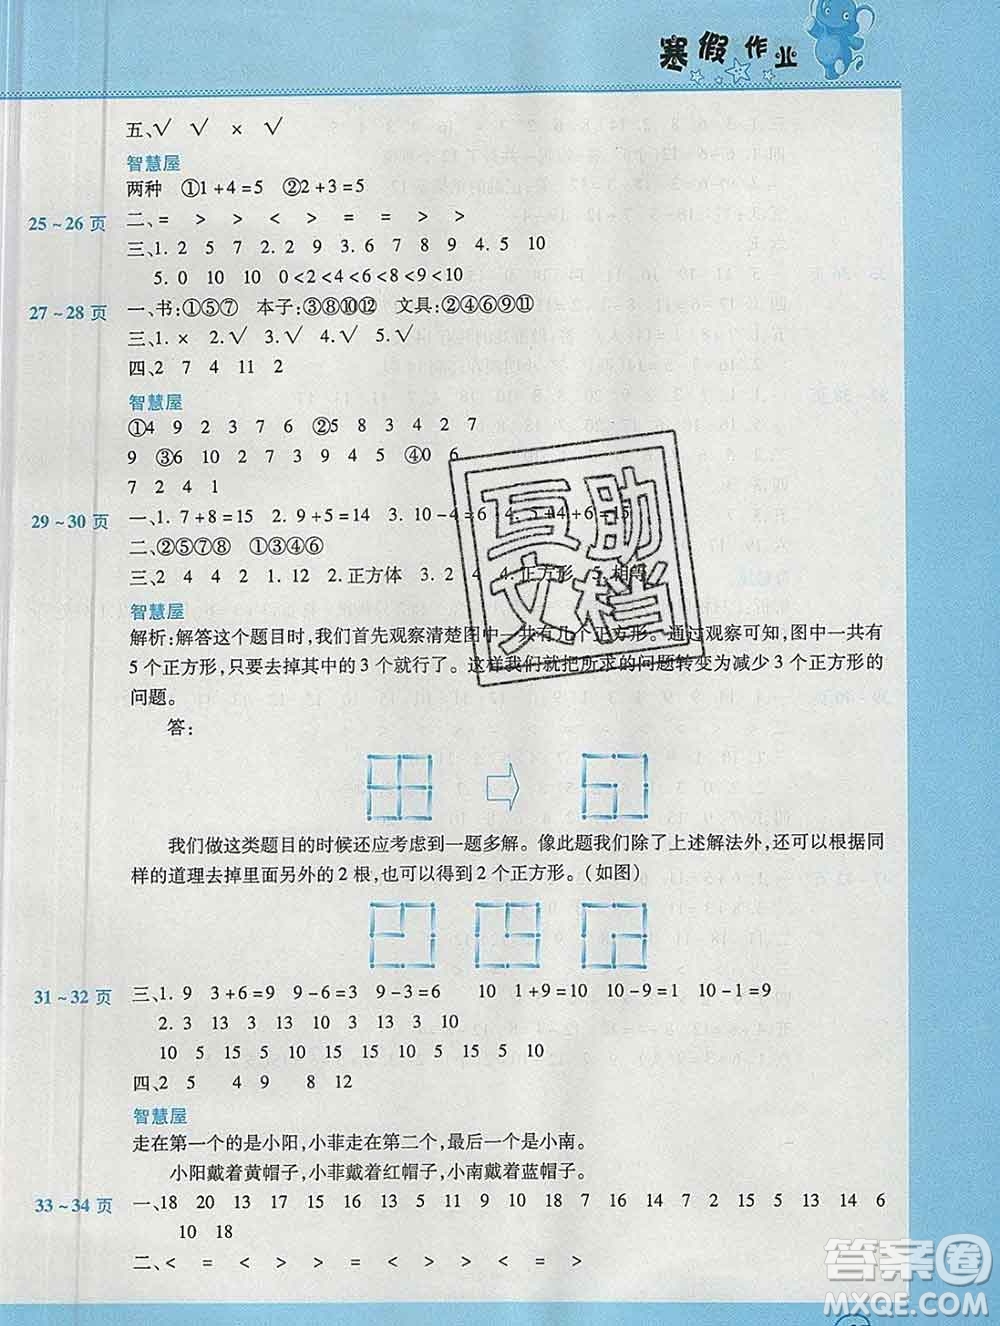 寒假作业
五、√ √ × √
智慧屋
两种 ①1+4=5 ②2+3=5
25~26页 二、= > > < > < = > >
三、1. 2 5 7 2. 2 9 3. 6 8 7 9 4. 5 10
5. 0 10 10 0<2<4<6<8<9<10
27~28页 一、书:①⑤⑦ 本子:③⑧⑩⑫ 文具:②④⑥⑨⑪
三、1. × 2. √ 3. √ 4. √ 5. √
四、2 7 4 11 2
智慧屋
①4 9 2 3 7 6 ②5 8 3 4 2 7
9 ③6 10 2 7 3 9 4 5 ④0 6
7 2 4 1
29~30页 一、1. 7+8=15 2. 9+5=14 3. 10-4=6 5+4+6=15
二、②⑤⑦⑧ ①③④⑥
三、2 4 1 2 2. 正方体 3. 2 4 4. 正方形 5. 相等
智慧屋
解析:解答这个题目时,我们首先观察清楚图中一共有几个正方形。通过观察可知,图中一共有
5个正方形,只要去掉其中的3个就行了。这样我们就把所求的问题转变为减少3个正方形的
问题。
答:
我们做这类题目的时候还应考虑到一题多解。像此题我们除了上述解法外,还可以用同
样的道理去掉里面另外的2根,也可以得到2个正方形。(如图)
31~32页 三、1. 9 3+6=9 9-6=3 9-3=6 10 1+9=10 10-9=1 10-1=9
2. 3 13 3 13 10 3 13 3 10
10 5 15 5 10 15 10 5 15 5 10
四、2 5 4 9 8 12
智慧屋
走在第一个的是小阳,小菲走在第二个,最后一个是小南。
小阳戴着黄帽子,小菲戴着红帽子,小南戴着蓝帽子。
33~34页 一、18 20 13 17 15 10 14 5 11 9 10 9 2 7 15 5 13 14 6
10 18
二、< = < < > > > < > > < = >
互助
文档
答案圈
MXQE.COM